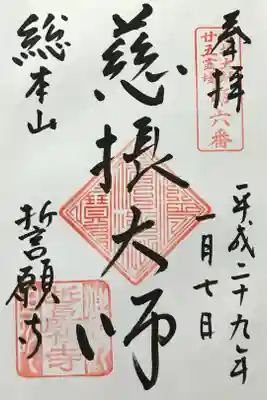 奉拝
廿五霊場
六番
平成二十九年
一月七日
慈 大師
総本山
誓願寺